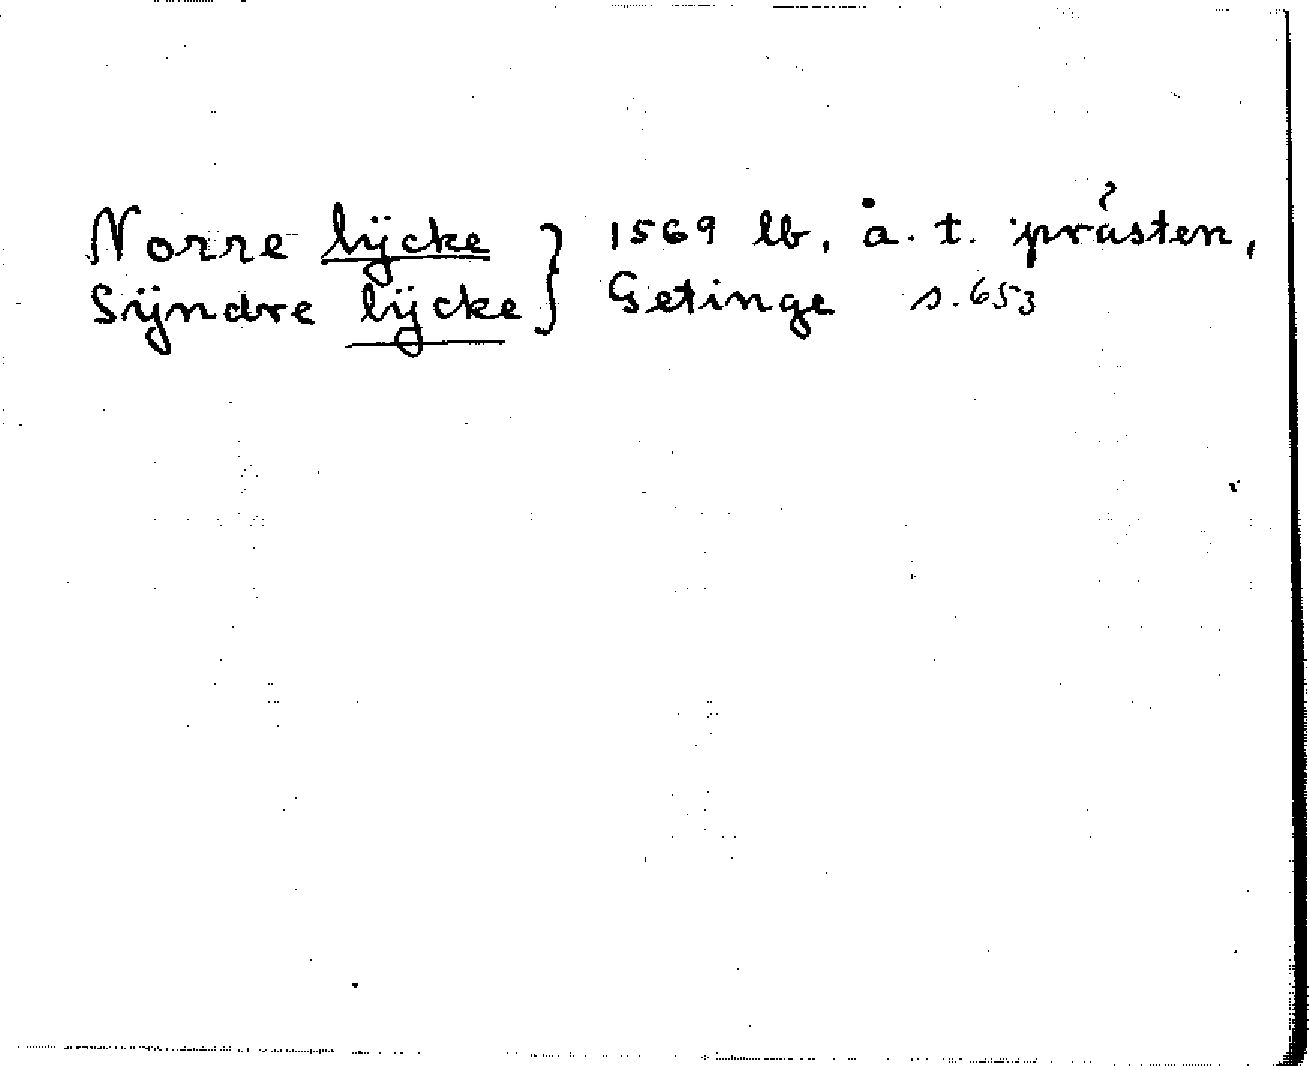 Norre lÿcke } 1569 lb. å. t. prästen,
Sÿndre lÿcke } Getinge s. 653